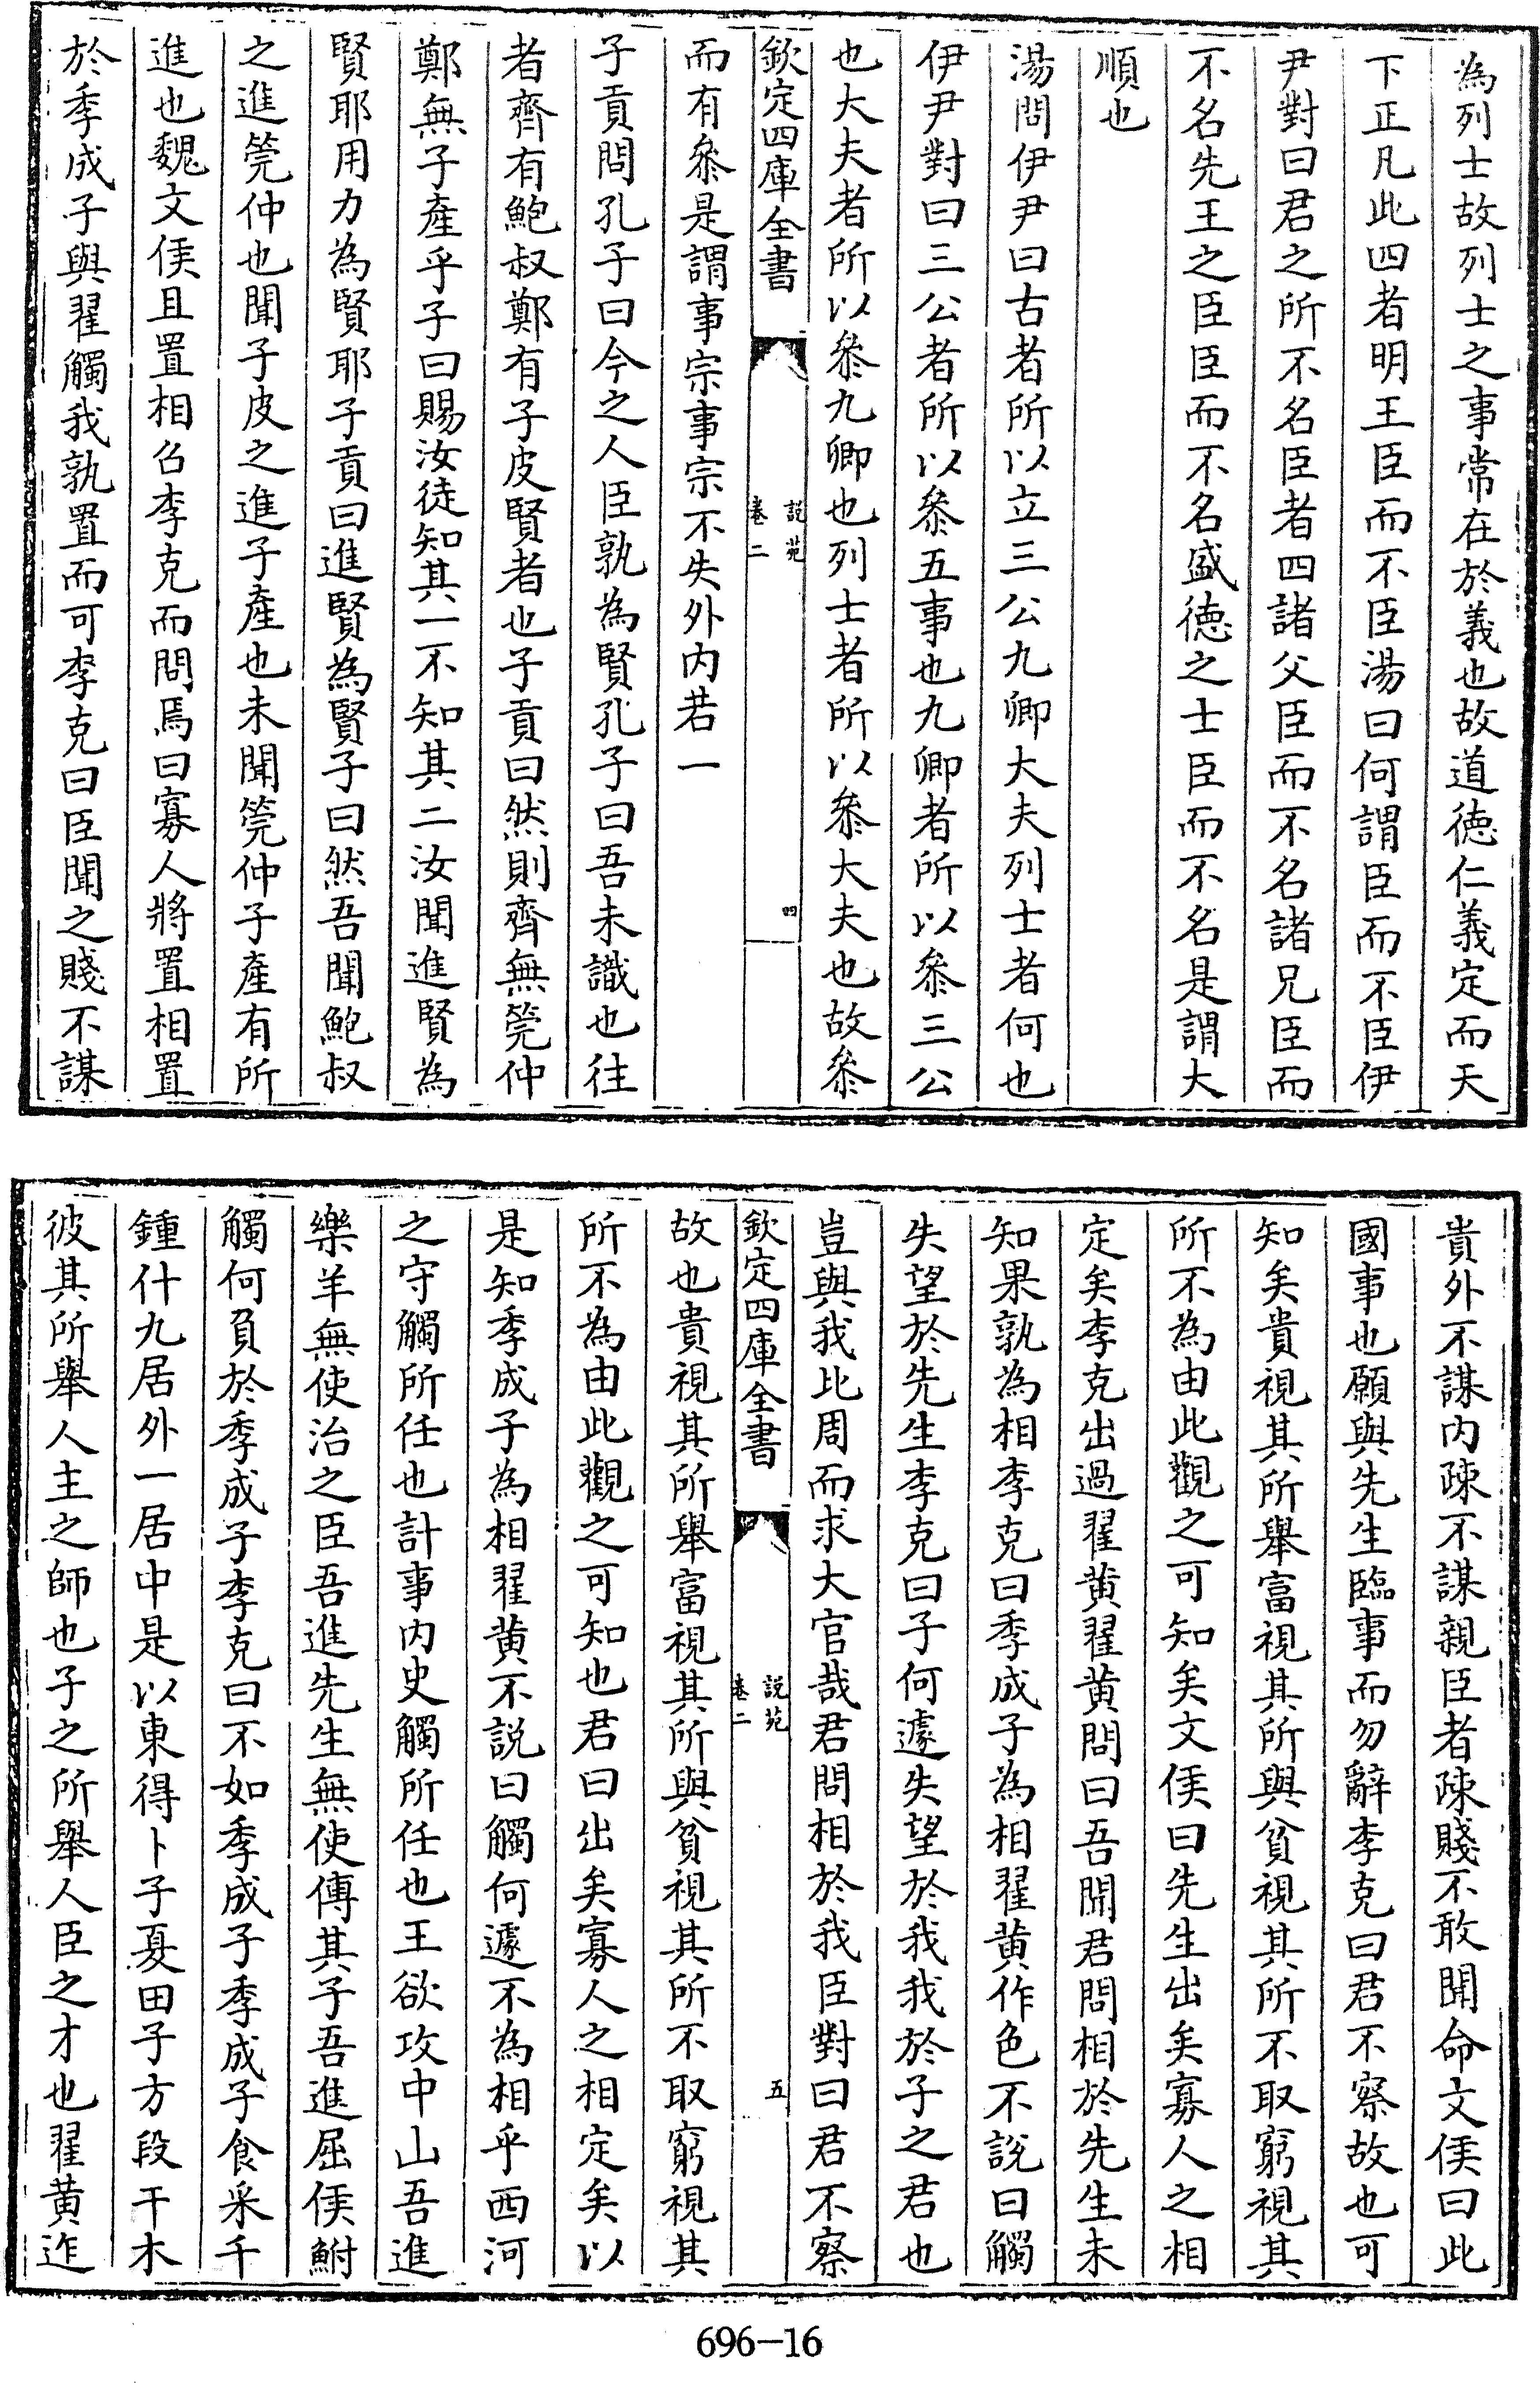 為列士故列士之事常在於義也故道徳仁義定而天
下正凡此四者明王臣而不臣湯曰何謂臣而不臣伊
尹對曰君之所不名臣者四諸父臣而不名諸兄臣而
不名先王之臣臣而不名盛徳之士臣而不名是謂大
順也
湯問伊尹曰古者所以立三公九卿大夫列士者何也
伊尹對曰三公者所以叅五事也九卿者所以叅三公
也大夫者所以叅九卿也列士者所以叅大夫也故叅
欽定四庫全書
說苑
卷二
四
而有叅是謂事宗事宗不失外内若一
子貢問孔子曰今之人臣孰為賢孔子曰吾未識也往
者齊有鮑叔鄭有子皮賢者也子貢曰然則齊無筦仲
鄭無子產乎子曰賜汝徒知其一不知其二汝聞進賢為
賢耶用力為賢耶子貢曰進賢為賢子曰然吾聞鮑叔
之進筦仲也聞子皮之進子產也未聞筦仲子產有所
進也魏文侯且置相召李克而問焉曰寡人將置相置
於季成子與翟觸我孰置而可李克曰臣聞之賤不謀
貴外不謀内疎不謀親臣者疎賤不敢聞命文侯曰此
國事也願與先生臨事而勿辭李克曰君不察故也可
知矣貴視其所舉富視其所與貧視其所不取窮視其
所不為由此觀之可知矣文侯曰先生出矣寡人之相
定矣李克出過翟黄翟黄問曰吾聞君問相於先生未
知果孰為相李克曰季成子為相翟黄作色不說曰觸
失望於先生李克曰子何遽失望於我我於子之君也
豈與我比周而求大官哉君問相於我臣對曰君不察
欽定四庫全書
說苑
卷二
五
故也貴視其所舉富視其所與貧視其所不取窮視其
所不為由此觀之可知也君曰出矣寡人之相定矣以
是知季成子為相翟黄不說曰觸何遽不為相乎西河
之守觸所任也計事内史觸所任也王欲攻中山吾進
樂羊無使治之臣吾進先生無使傅其子吾進屈侯鮒
觸何負於季成子李克曰不如季成子季成子食采千
鍾什九居外一居中是以東得卜子夏田子方段干木
彼其所舉人主之師也子之所舉人臣之才也翟黄迮
696-16